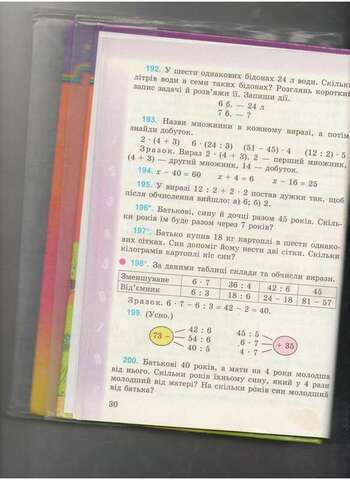 192. У шести однакових бідонах 24 л води. Скільки
літрів води в семи таких бідонах? Розглянь короткий
запис задачі й розв'яжи її. Запиши дії.
6 б. — 24 л
7 б. — ?
193. Назви множники в кожному виразі, а потім
знайди добуток.
2 · (4 + 3) 6 · (24 : 3) (51 − 45) · 4 (12 : 2) · 5
Зразок. Вираз 2 · (4 + 3). 2 — перший множник,
(4 + 3) — другий множник, 14 — добуток.
194. x − 40 = 60 x + 4 = 6 x − 16 = 25
195. У виразі 12 : 2 + 2 · 2 постав дужки так, щоб
після обчислення вийшло: а) 6; б) 2.
196*. Батькові, сину й дочці разом 45 років. Скіль-
ки років їм буде разом через 7 років?
197*. Батько купив 18 кг картоплі в шести однако-
вих сітках. Син допоміг йому нести дві сітки. Скільки
кілограмів картоплі ніс син?
198*. За даними таблиці склади та обчисли вирази.
Зменшуване 6 · 7 36 : 4 42 : 6 45
Від'ємник 6 : 3 18 : 6 24 − 18 81 − 57
Зразок. 6 · 7 − 6 : 3 = 42 − 2 = 40.
199. (Усно.)
42 : 6 45 : 5
73 − 54 : 6 6 · 7 + 35
40 : 5 4 · 7
200. Батькові 40 років, а мати на 4 роки молодша
від нього. Скільки років їхньому сину, який у 4 рази
молодший від матері? На скільки років син молодший
від батька?
30